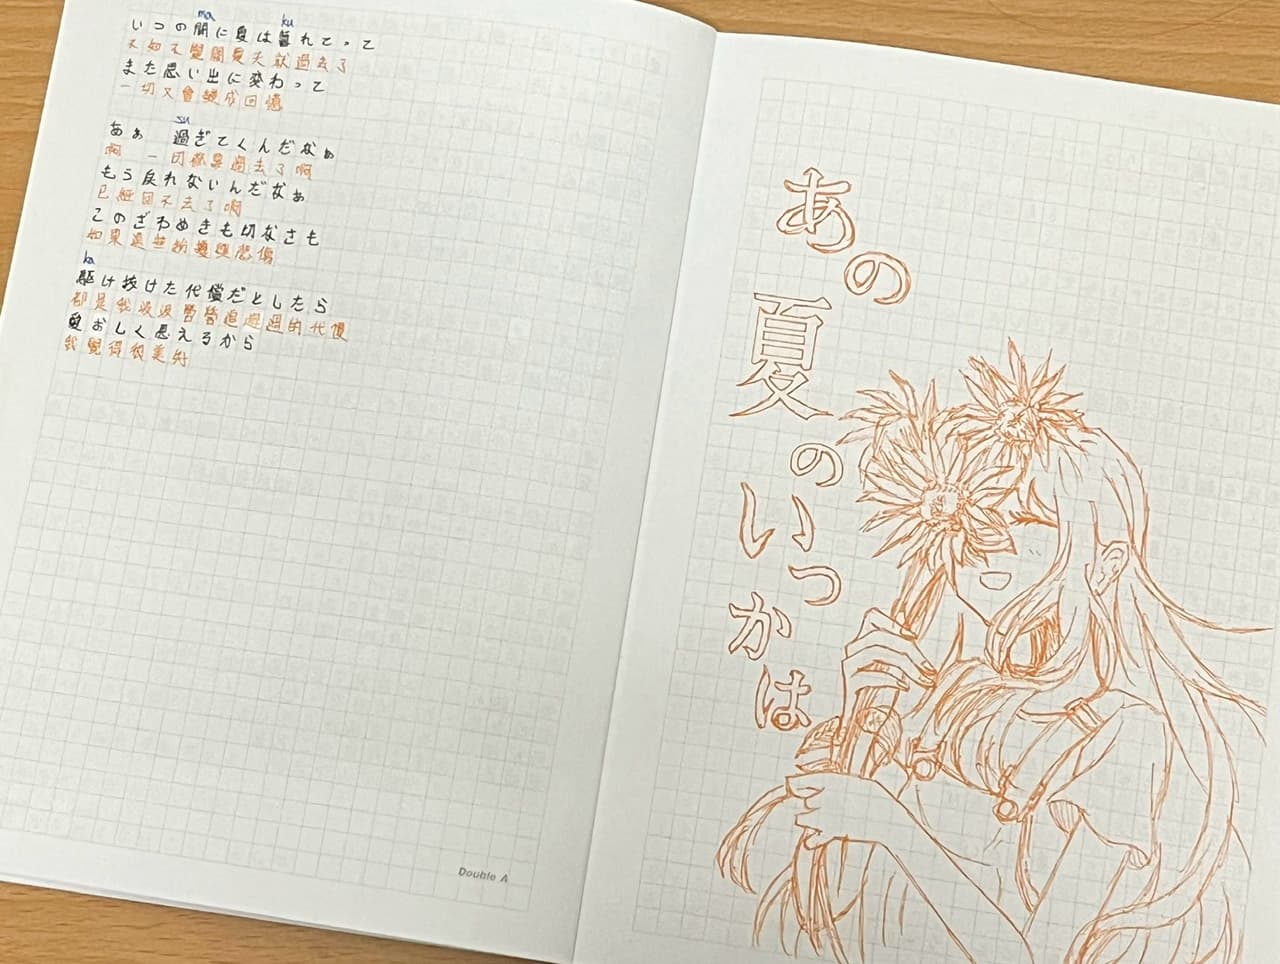 ma ku
いつの間に夏は暮れてって
不知不覺間夏天就過去了
また思い出に変わって
一切又會變成回憶
su
あぁ 過ぎてくんだなぁ
啊 一切都要過去了啊
もう戻れないんだなぁ
已經回不去了啊
このざわめきも切なさも
如果這些紛擾與悲傷
ka
駆け抜けた代償だとしたら
都是我汲汲營營追趕過的代價
愛おしく思えるから
我覺得很美好
Double A
あの
夏の
いつ
かは